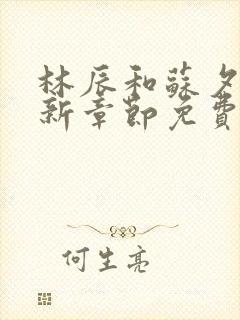 林辰和蘇夕
新章節免費
何生亮